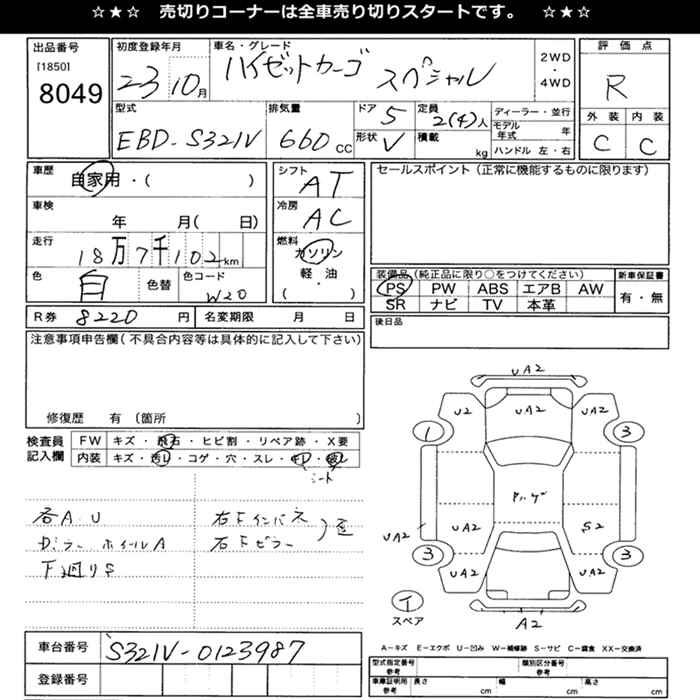 ☆ ★ ☆ 売切りコーナーは全車売り切りスタートです。 ☆ ★ ☆
出品番号
[1850]
8049
初度登録年月
23 10月
車名・グレード
ハイゼットカーゴ スペシャル
2WD
・
4WD
評価点
R
外装 内装
C C
型式
EBD-S321V
排気量
660 CC
ドア 5
形状 V
定員
2(4)人
積載
kg
ディーラー・並行
モデル年式 年
ハンドル 左・右
車歴
自家用・( )
車検
年 月( 日)
走行
18万7千102km
色
白
色替
色コード
W20
シフト
AT
冷房
AC
燃料
ガソリン
軽・油
( )
セールスポイント(正常に機能するものに限ります)
装備品(純正品に限り○をつけてください)
PS PW ABS エアB AW
SR ナビ TV 本革
新車保証書
有・無
R券 8220 円
名変期限 月 日
後日品
注意事項申告欄(不具合内容等は具体的に記入して下さい)
修復歴 有 (箇所 )
検査員
記入欄
FW キズ・飛石・ヒビ割・リペア跡・X要
内装 キズ・汚れ・コゲ・穴・スレ・切レ・破レ
シート
各A.U
Dミラー ホイールA
下廻りS
右Fインパネ
右Fピラー
) 歪
UA2
U2 UA2 UA2
1 3
UA2 UA2 S2
3 3
UA2 UA2
イ
スペア
A2
A-キズ E-エクボ U-凹み W-補修跡 S-サビ C-腐食 XX-交換済
車台番号
S321V-0123987
登録番号
型式指定番号
参考
類別区分番号
参考
車庫証明用
参考
長さ cm 幅 cm 高さ cm